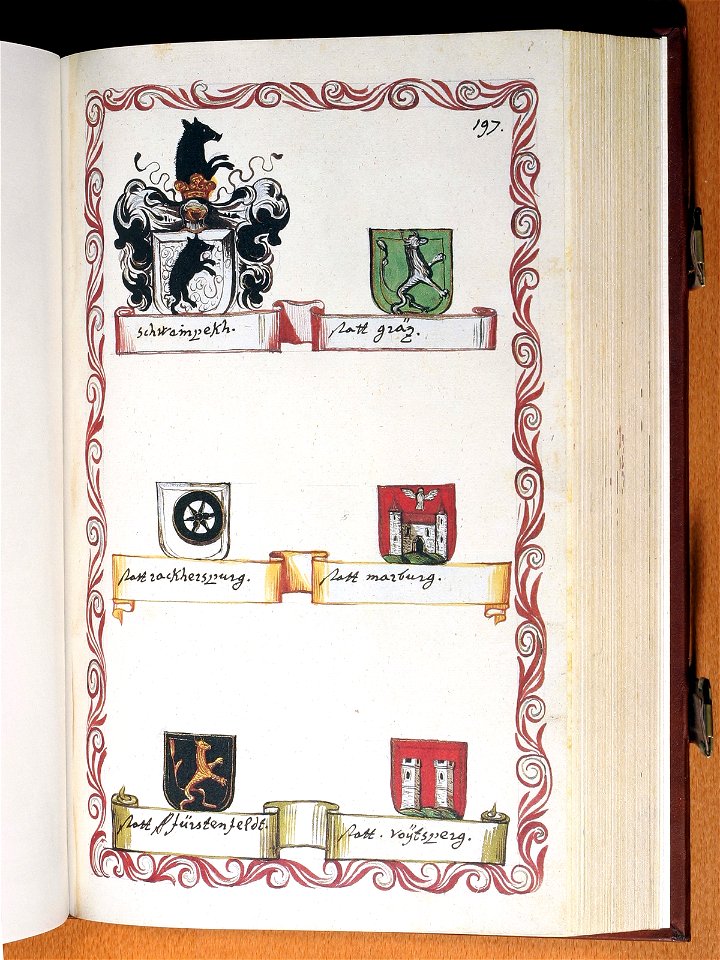 197.
schwampekh.
statt gräz.
statt rackherspurg.
statt marburg.
statt fürstenfeldt.
statt. voÿtsperg.